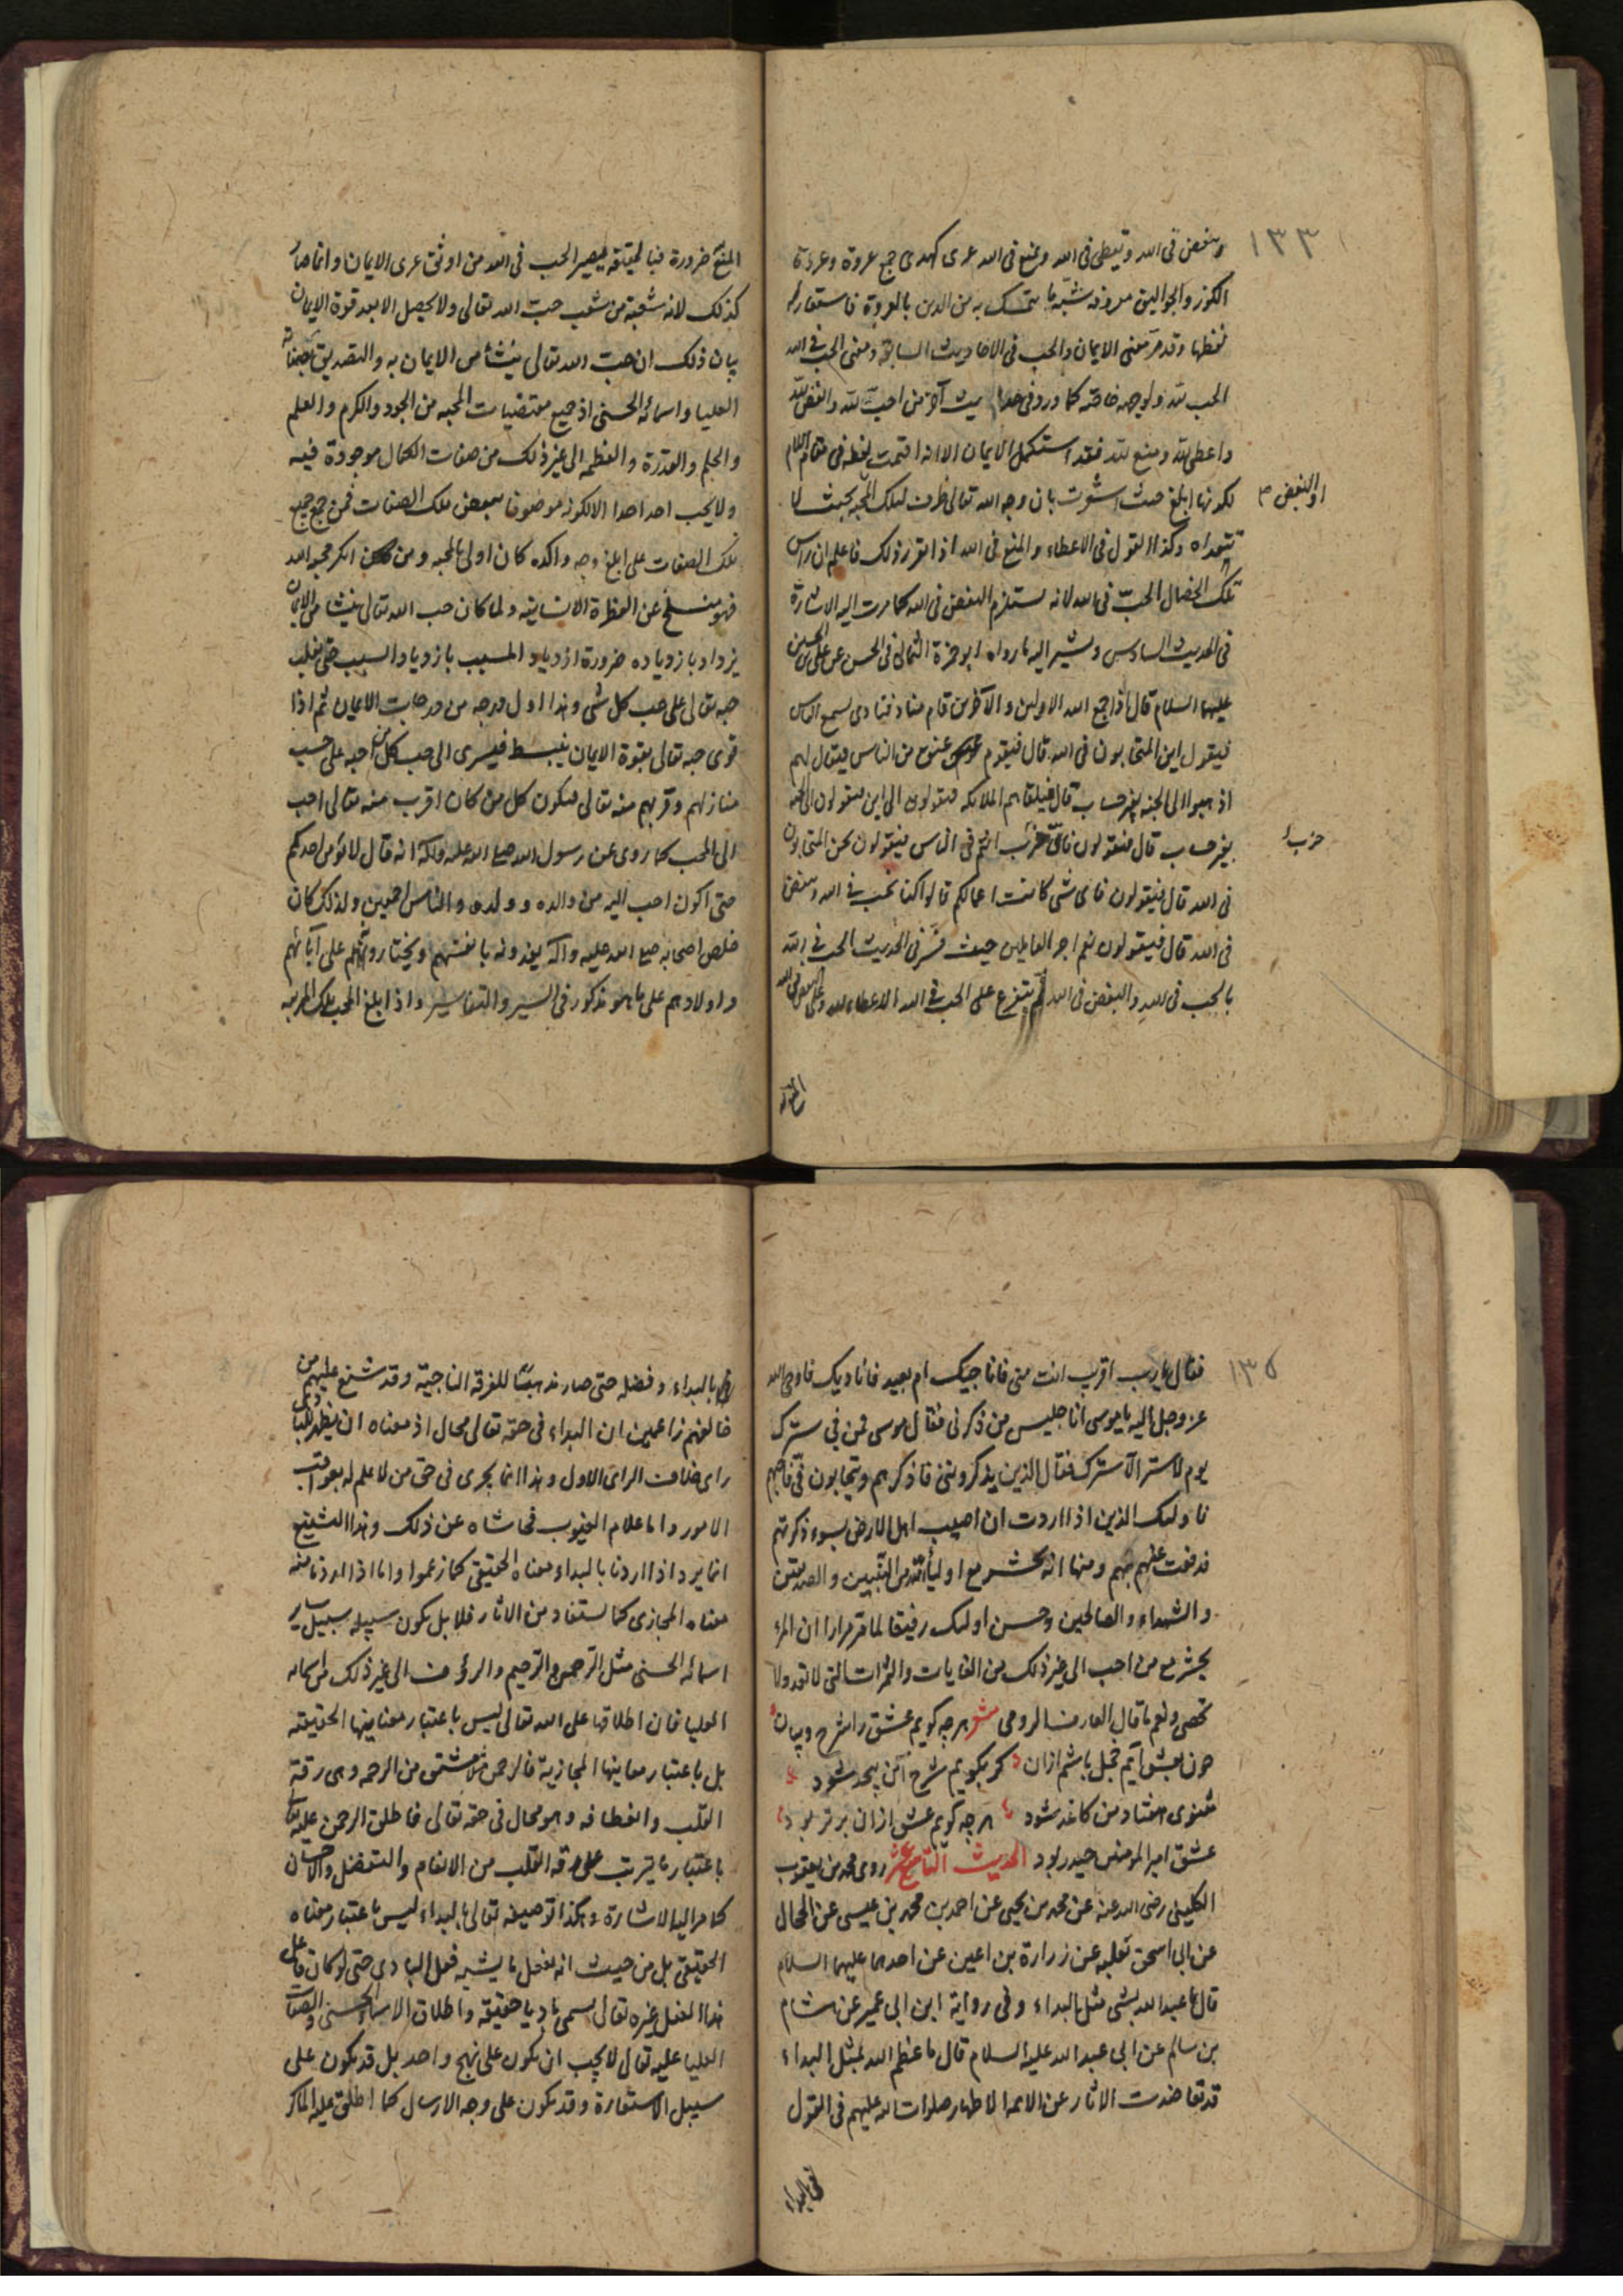 ١٣٣
وتبغض فى الله وتعطى فى الله وتمنع فى الله عرى كهدى جمع عروة وعروة
الكوز والجواليق معروفه شبّه ما يتمسك به من الدين بالعروة فاستعار له
لفظها وقد مر معنى الايمان والحب فى الاحاديث السابقة ومعنى الحب فى الله
الحب لله ولوجهه خاصّه كما ورد فى حديث آخر من احبّ لله وابغض لله
واعطى لله ومنع لله فقد استكمل الايمان الا انه اقيمت لفظه فى مقام اللام
او البغض
لكونها ابلغ حيث اشعرت بان وجه الله تعالى ظرف لتلك المحبه بحيث لا
تتعداه وكذا القول فى الاعطاء والمنع فى الله اذا تقرر ذلك فاعلم ان راس
تلك الخصال الحبّ فى الله لانه يستلزم البغض فى الله كما مرت اليه الاشارة
فى الحديث السادس ويشير اليه ما رواه ابو حمزة الثمالى فى الحسن عن على بن الحسين
عليهما السلام قال اذا جمع الله الاولين والآخرين قام مناد فنادى يسمع الناس
فيقول اين المتحابون فى الله قال فيقوم عنق من الناس فيقال لهم
اذهبوا الى الجنه بغير حساب قال فيلقاهم الملائكه فيقولون الى اين فيقولون الى الجنه
حزب
بغير حساب قال فيقولون فاىّ حزب انتم فى الناس فيقولون نحن المتحابون
فى الله قال فيقولون فاى شى كانت اعمالكم قالوا كنا نحب فى الله ونبغض
فى الله قال فيقولون نعم اجر العاملين حيث فسّر فى الحديث الحب فى الله
بالحب فى الله والبغض فى الله ثم يتفرع على الحب فى الله الاعطاء لله وعلى البغض فى الله
المنع ضرورة فبالحقيقه يصير الحب فى الله من اوثق عرى الايمان وانما صار
كذلك لانه شعبة من شعب حبّ الله تعالى ولا يحصل الا بعد قوة الايمان
بيان ذلك ان حبّ الله تعالى ينشأ من الايمان به والتصديق بصفاته
العليا واسمائه الحسنى اذ جميع مقتضيات المحبه من الجود والكرم والعلم
والحلم والقدرة والعظمه الى غير ذلك من صفات الكمال موجودة فيه
ولا يحب احد احدا الا لكونه موصوفا ببعض تلك الصفات فمن جمع جميع
تلك الصفات على ابلغ وجه واكده كان اولى بالمحبه ومن انكر محبه الله
فهو منسلخ عن الفطرة الانسانيه ولما كان حب الله تعالى ينشا من الايمان
يزداد بازدياده ضرورة ازدياد المسبب بازدياد السبب حتى يغلب
حبه تعالى على حب كل شى وهذا اول درجه من درجات الايمان ثم اذا
قوى حبه تعالى بقوة الايمان ينبسط فيسرى الى حب كل من احبه على حسب
منازلهم وقربهم منه تعالى فيكون كل من كان اقرب منه تعالى احب
الى المحب كما روى عن رسول الله صلى الله عليه واله انه قال لا يؤمن احدكم
حتى اكون احب اليه من والده وولده والناس اجمعين ولذلك كان
خلص اصحابه صلى الله عليه واله يفدونه بانفسهم ويختارونه على آبائهم
واولادهم على ما هو مذكور فى السير والتفاسير واذا بلغ الحب تلك المرتبه
١٣٥
فقال يا رب اقرب انت منى فاناجيك ام بعيد فاناديك فاوحى الله
عز وجل اليه يا موسى انا جليس من ذكرنى فقال موسى فمن فى سترك
يوم لا ستر الا سترك فقال الذين يذكروننى فاذكرهم ويتحابون فىّ فاحبهم
فاولئك الذين اذا اردت ان اصيب اهل الارض بسوء ذكرتهم
فدفعت عنهم بهم ومنها انه يحشر مع اولياء الله من النبيين والصديقين
والشهداء والصالحين وحسن اولئك رفيقا لما مر مرارا ان المرء
يحشر مع من احب الى غير ذلك من الغايات والثمرات التى لا تعد ولا
تحصى ونعم ما قال العارف الرومى شعر هرچه كويم عشق را شرح وبيان
چون بعشق آيم خجل باشم ازان كر بكويم شرح آن بيحد شود
مثنوى هفتاد من كاغذ شود هرچه كويم عشق ازان برتر بود
عشق امير المومنين حيدر بود الحديث التاسع عشر روى محمد بن يعقوب
الكلينى رضى الله عنه عن محمد بن يحيى عن احمد بن محمد بن عيسى عن الحجال
عن ابى اسحق ثعلبه عن زرارة بن اعين عن احدهما عليهما السلام
قال ما عبد الله بشى مثل البداء وفى رواية ابن ابى عمير عن هشام
بن سالم عن ابى عبد الله عليه السلام قال ما عظم الله بمثل البداء
قد تعاضدت الاثار عن الائمه الاطهار صلوات الله عليهم فى القول
بالبداء وفضله حتى صار مذهبا للفرقه الناجية وقد شنع عليهم من
خالفهم زاعمين ان البداء فى حقه تعالى محال اذ معناه ان يظهر للبادى
راى خلاف الراى الاول وهذا انما يجرى فى حق من لا علم له بعواقب
الامور واما علام الغيوب فحاشاه عن ذلك وهذا التشنيع
انما يرد اذا اردنا بالبداء معناه الحقيقى كما زعموا واما اذا اردنا منه
معناه المجازى كما يستفاد من الاثار فلا بل يكون سبيله سبيل ساير
اسمائه الحسنى مثل الرحمن والرحيم والرؤف الى غير ذلك من اسمائه
العليا فان اطلاقها على الله تعالى ليس باعتبار معانيها الحقيقته
بل باعتبار معانيها المجازية فالرحمن مثلا مشتق من الرحمه وهى رقة
القلب وانعطافه وهو محال فى حقه تعالى فاطلق الرحمن عليه تعالى
باعتبار ما يترتب على رقه القلب من الانعام والتفضل والاحسان
كما مر اليه الاشارة وهكذا توصيفه تعالى بالبداء ليس باعتبار معناه
الحقيقى بل من حيث انه يفعل ما يشبه فعل البادى حتى لو كان فاعل
هذا الفعل غيره تعالى يسمى باديا حقيقه واطلاق الاسماء الحسنى والصفات
العليا عليه تعالى لا يجب ان يكون على نهج واحد بل قد يكون على
سبيل الاستعارة وقد يكون على وجه الارسال كما اطلق عليه الماكر